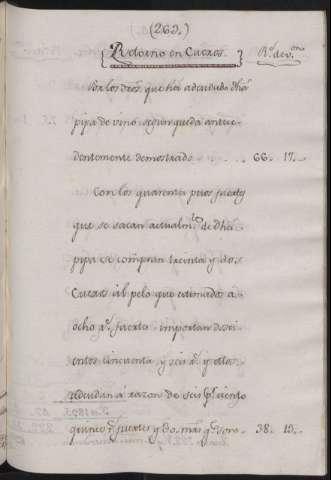 (263.)
Retorno en Cueros. R.s de v.on
Por los dros. que há adeudado dhã
pipa de vino segun queda antece-
dentemente demostrado . . . . . . 66. 17.
Con los quarenta pesos fuertes
que se sacan actualm.te de dhã
pipa se compran treinta y dos
Cueros al pelo que estimados á
ocho r.s fuertes importan dosci-
entos cincuenta y seis r.s y ellos
adeudan á razon de seis p.r ciento
quince r.s fuertes y 38. 15.